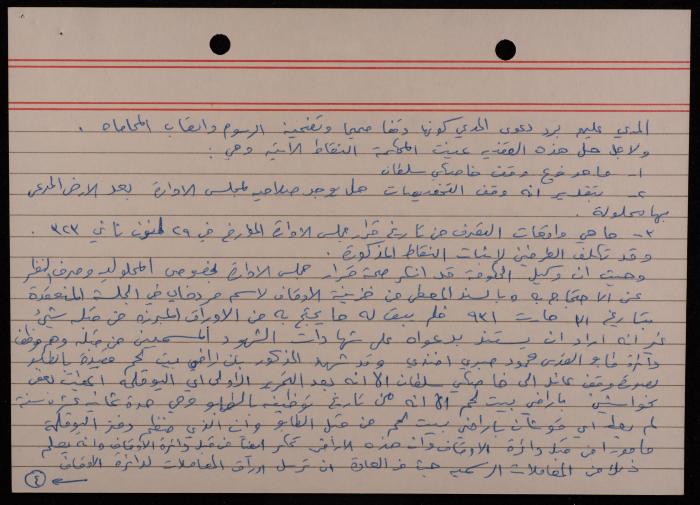 المدعي عليهم برد دعوى المدعي كونها وقفا صحيحا وتضمينه الرسوم واتعاب المحاماه .
ولاجل حل هذه القضيه عينت المحكمة النقاط الآتية وهي :
١- ما هو نوع وقف خاصكي سلطان
٢- بتقدير انه وقف التخصيصات هل يوجد صلاحيه لمجلس الادارة بعد الارض المدعى
بها محلولة .
٣- ما هي واقعات التصرف من تاريخ قرار مجلس الادارة المؤرخ في ٢٩ كانون ثاني ٣٢٣ .
وقد تكلف الطرفين لاثبات النقاط المذكورة .
وحيث ان وكيل الحكومة قد انكر صحة قرار مجلس الادارة بخصوص المحلوليه وصرف النظر
عن الاحتجاج به وبالسند المعطى من خزينة الاوقاف لاسم في الجلسة المنعقدة
بتاريخ ٣١ مارت ٩٣١ فلم يبق له ما يحتج به من الاوراق المبرزه من قبله شيئ
غير انه اراد ان يستند بدعواه على شهادات الشهود المسميين من قبله وهم موظف
دائرة طابو القدس محمود صبري افندي وقد شهد المذكور بان اراضي بيت لحم مقيدة بالطابو
بصورة وقف عائد الى خاصكي سلطان الا انه بعد التحرير الاولى اي اليوقلمه
اراضي بيت لحم الا انه من تاريخ توظيفه بالطابو وهي مدة ثمانية عشر سنة
لم يعط اي قوچان باراضي بيت لحم من قبل الطابو وان الذي نظم دفتر اليوقلمة
مامورا من قبل دائرة الاوقاف وان هذه الاراضي ايضا من قبل دائرة الاوقاف وانه يعلم
ذلك من المعاملات الرسميه حيث من العادة ان ترسل اوراق المعاملات لدائرة الاوقاف
٤